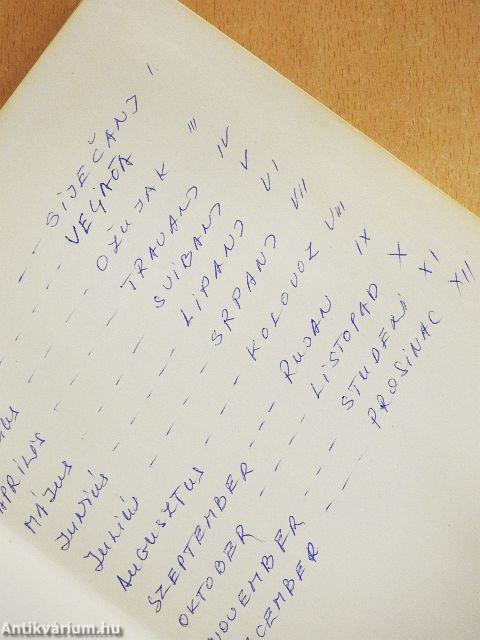 -- SIJEČANJ I
-- VELJAČA
-- OŽUJAK III
-- TRAVANJ IV
-- SVIBANJ V
APRILÓS -- LIPANJ VI
MÁJUS -- SRPANJ VII
JUNIÚS -- KOLOVOZ VIII
JULIÚ -- RUJAN IX
AUGUSZTUS -- LISTOPAD X
SZEPTEMBER -- STUDENI XI
OKTOBER -- PROSINAC XII
NOVEMBER --
CEMBER --
Antikvárium.hu